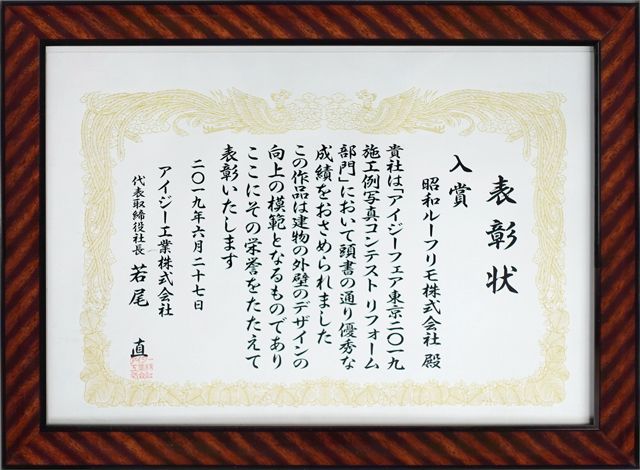 表彰状
入賞
昭和ルーフリモ株式会社 殿
貴社は「アイジーフェア東京二〇一九
施工例写真コンテスト リフォーム
部門」において頭書の通り優秀な
成績をおさめられました
この作品は建物の外壁のデザインの
向上の模範となるものであり
ここにその栄誉をたたえて
表彰いたします
二〇一九年六月二十七日
アイジー工業株式会社
代表取締役社長 若尾 直